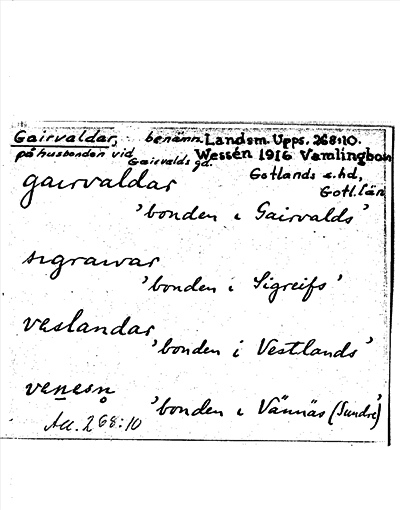 Gairvaldar, benämn. Landsm. Upps. 268:10.
på husbonden vid Gairvalds gd. Wessén 1916 Vamlingbo sn
Gotlands s. hd,
Gotl. län
gaırvaldar
'bonden i Gairvalds'
sıgraıvar
'bonden i Sigreifs'
veslandar
'bonden i Vestlands'
venesn̥
'bonden i Vännäs (Sundre)'
Acc. 268:10